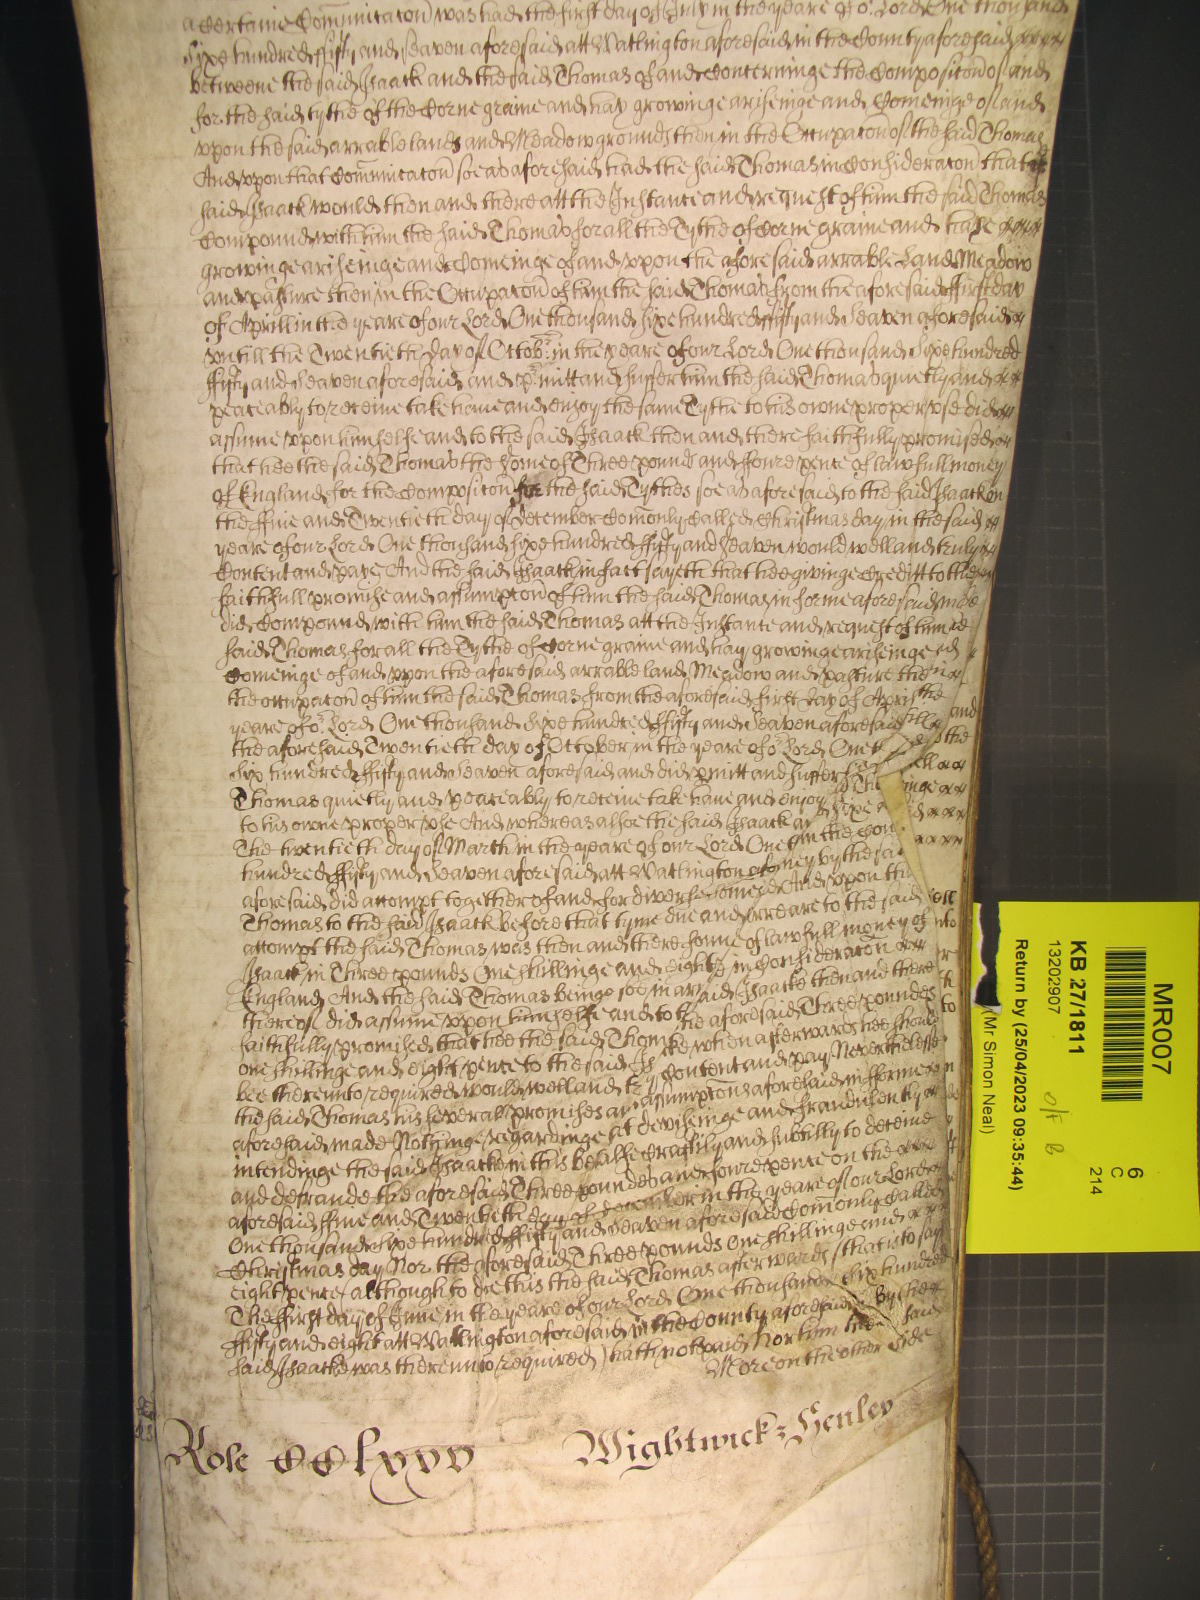 a Certaine Communicacon was had the first day of July in the yeare of or. Lord One thousand
Sixe hundred ffifty and Seaven aforesaid att Watlington aforesaid in the County aforesaid
betweene the said Isaack and the said Thomas of and Concerninge the Composicon of and
for the said tythe of the Corne graine and hay growinge ariseinge and Comeinge of and
vpon the said arrable lands and Meadow grounds then in the Occupacon of the said Thomas
And vpon that Communicacon soe as aforesaid had the said Thomas in Consideracon that
said Isaack would then and there att the Instance and request of him the said Thomas
Compound with him the said Thomas for all the Tythe of Corne graine and haye
growinge ariseinge and Comeinge of and vpon the aforesaid arrable Land Meadow
and pasture then in the Occupacon of him the said Thomas from the aforesaid ffirst day
of Aprill in the yeare of our Lord One thousand sixe hundred ffifty and Seaven aforesaid
vntill the Twentieth day of Octobr. in the yeare of our Lord One thousand Sixe hundred
ffifty and Seaven aforesaid and pmitt and suffer him the said Thomas quietly and
peaceably to receive take have and enjoy the same Tythe to his owne proper vse did
assume vpon himselfe and to the said Isaack then and there faithfully promised
that hee the said Thomas the some of Three pounds and ffoure pence of lawfull money
of England for the Composicon for the said Tythes soe as aforesaid to the said Isaack on
the ffive and Twentieth day of December Comonly Called Christmas day in the said
yeare of our Lord One thousand sixe hundred ffifty and Seaven would well and truly
Content and pay And the said Isaack in fact sayeth that hee givinge Creditt to the
faithfull promise and assumpcon of him the said Thomas in forme aforesaid made
did Compound with him the said Thomas att the Instance and request of him the
said Thomas for all the Tythe of Corne graine and hay growinge ariseinge and
Comeinge of and vpon the aforesaid arrable land Meadow and pasture then in
the occupacon of him the said Thomas from the aforesaid first day of Aprill the
yeare of or. Lord One thousand Sixe hundred ffifty and Seaven aforesaid vntill and
the aforesaid Twentieth day of October in the yeare of or. Lord One the
Six hundred ffifty and Seaven aforesaid and did pmitt and suffer
Thomas quietly and peaceably to receive take have and enjoy
to his owne proper vse And whereas alsoe the said Isaack
The twentieth day of March in the yeare of our Lord One Sixe
hundred ffifty and Seaven aforesaid att Watlington in the
aforesaid did accompt together of and for diverse by the
Thomas to the said Isaack before that tyme due and And vpon
accompt the said Thomas was then and there found arreare to the said
Isaack in Three pounds One shillinge and eight of lawfull money of
England And the said Thomas beinge soe in arr in Consideracon
thereof did assume vpon himselfe and to the said Isaacke then and there
faithfully promised that hee the said Thomas the aforesaid Three poundes to
one shillinge and eight pence to the said when afterwards hee should
bee thereunto required would well and Content and pay Neverthelesse
the said Thomas his severall promises and assumptons aforesaid in fforme
aforesaid made Nothinge regardinge but deviseinge and fraudulently
intendinge the said Isaacke in this behalfe Craftily and subtilly to deceive
and defraude the aforesaid Three poundes and foure pence on the
aforesaid ffive and Twentieth day of December in the yeare of our Lord
One thousand Sixe hundred ffifty and Seaven aforesaid Comonly Called
Christmas day Nor the aforesaid Three pounds One shillinge and
eight pence although to doe this the said Thomas afterwards (that is to say
The ffirst day of June in the yeare of our Lord One thousand Six hundred
ffifty and eight att Watlington aforesaid in the County aforesaid By the
said Isaacke was thereunto required) hath not paid Nor him the said
More on the other Side
Role CClxxv Wightwick: Henley
MR007
6
C
214
KB 27/1811
13202907
o/f B
Return by (25/04/2023 09:35:44)
(Mr Simon Neal)